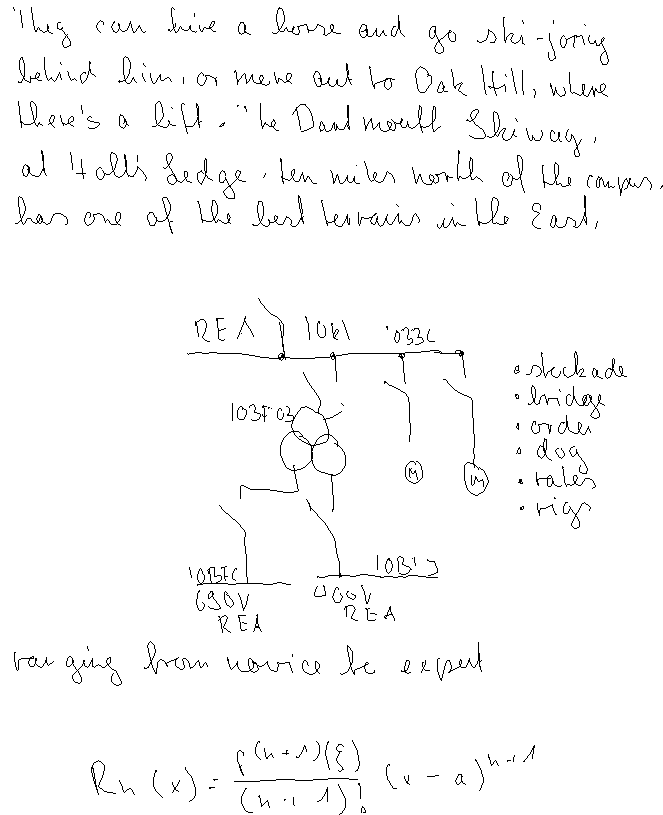 They can hire a horse and go ski-joring
behind him, or move out to Oak Hill, where
there's a lift. The Dartmouth Skiway,
at Holt's Ledge, ten miles north of the campus,
has one of the best terrains in the East,
REA
10BFC
690V
REA
400V
REA
M
M
• stockade
• bridge
• order
• dog
• rates
• rigs
ranging from novice to expert
Rn(x) = f^(n+1)(ξ) / (n+1)! (x-a)^n+1